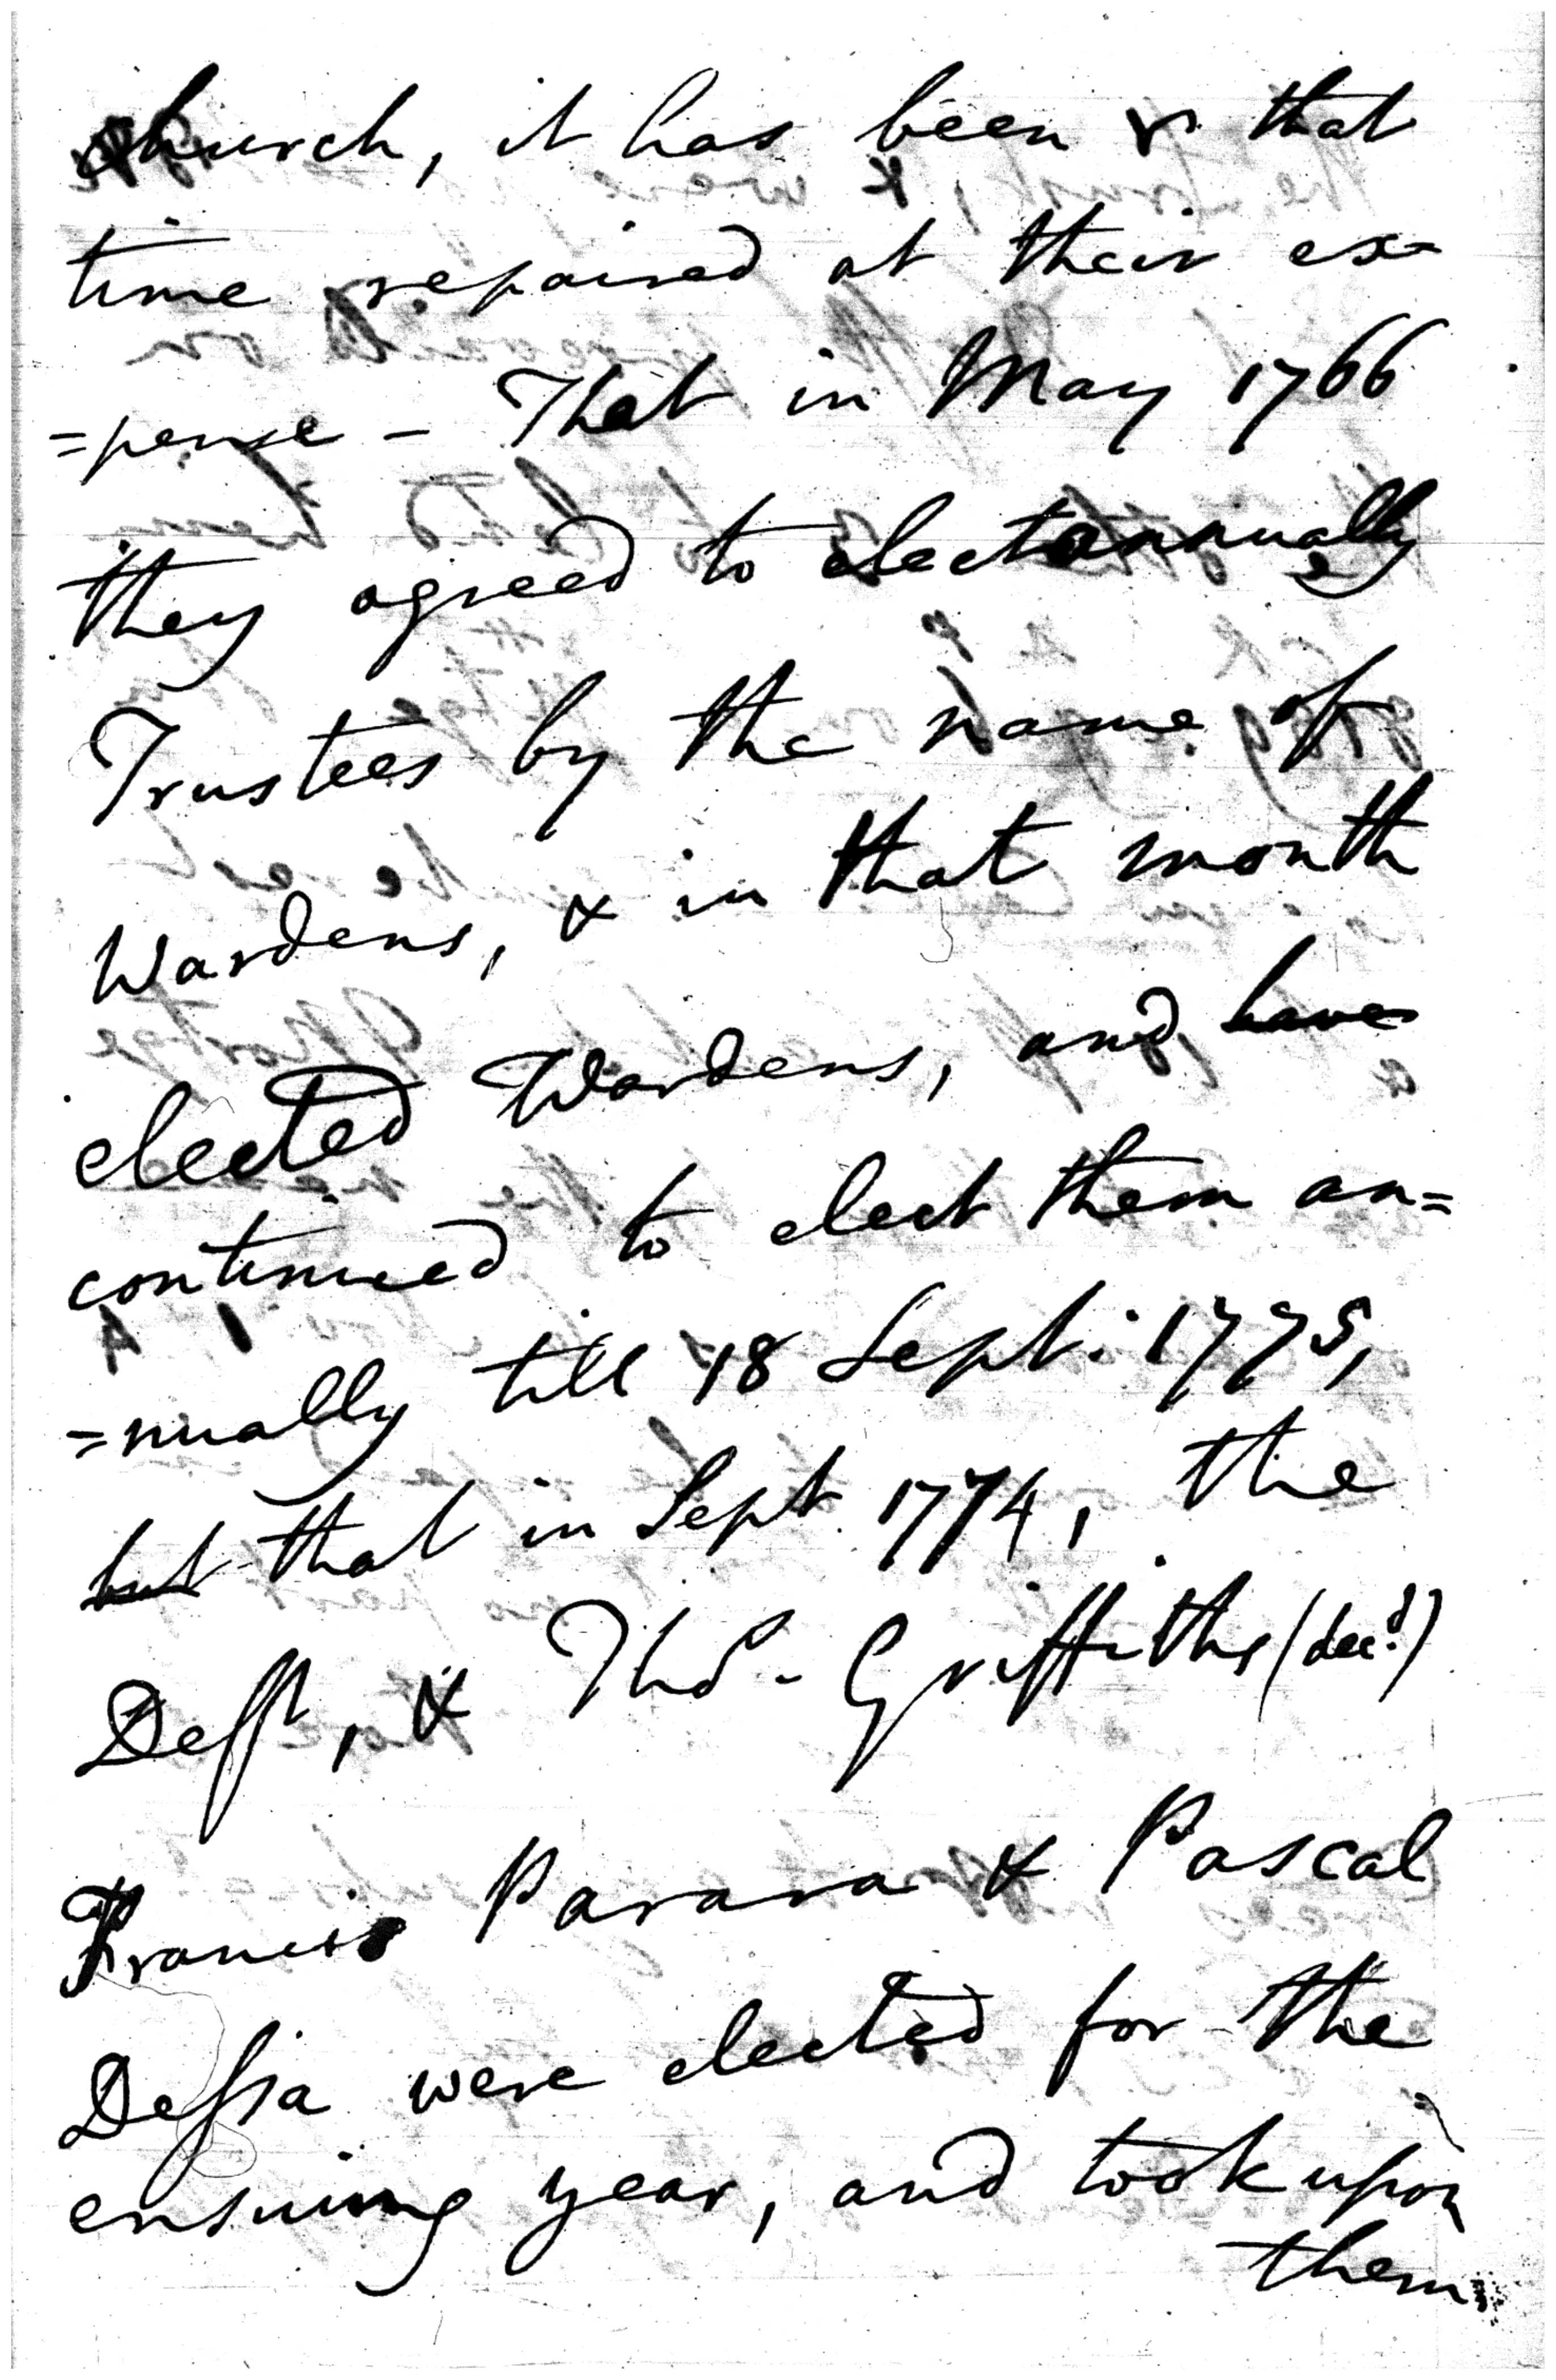 church, it has been & that
time repaired at their ex=
=pense - That in May 1766
they agreed to elect annually
Trustees by the name of
Wardens, & in that month
elected Wardens, and have
continued to elect them an=
=nually till 18 Sept: 1775,
but that in Sept 1774, the
Deft, & Thos. Griffiths (decd.)
Francis Parara & Pascal
Dessa were elected for the
ensuing year, and took upon
them